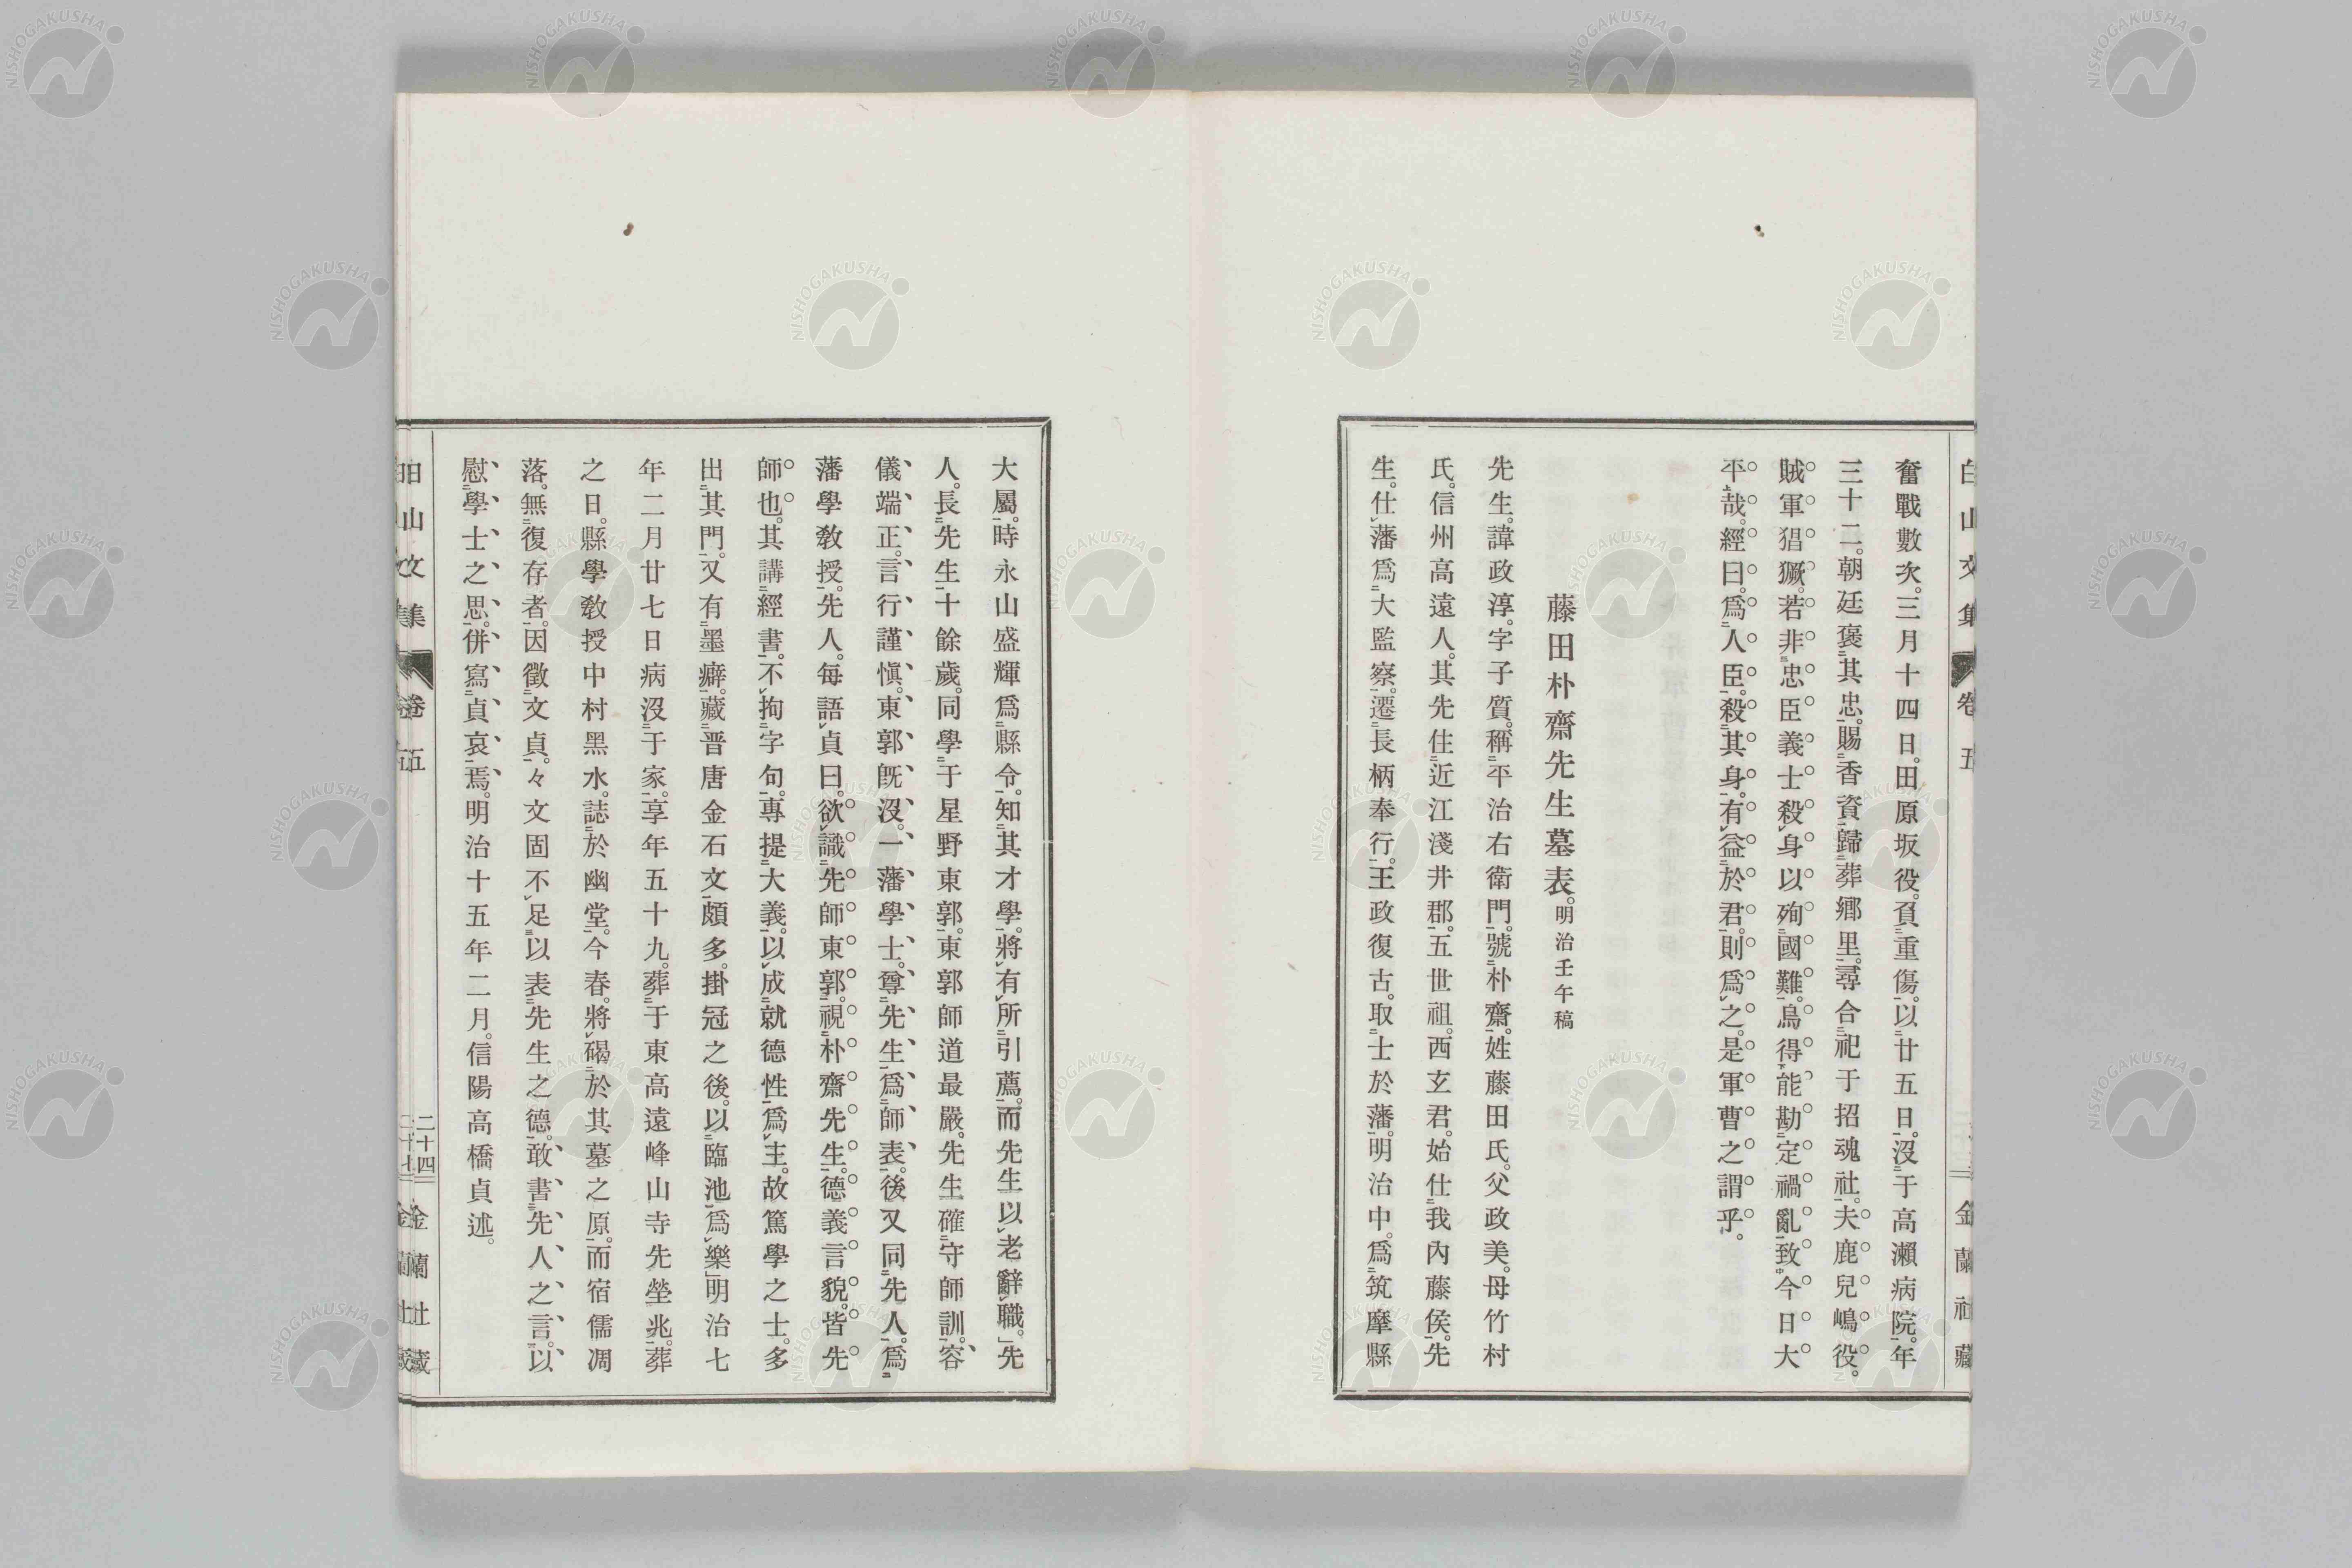 奮戰數次。三月十四日。田原坂役。負重傷。以廿五日。沒于高瀨病院。年
三十二。朝廷褒其忠。賜香資。歸葬鄉里。尋合祀于招魂社。夫鹿兒嶋役。
賊軍猖獗。若非忠臣義士殺身以殉國難。烏得能勘定禍亂。致今日大
平哉。經曰。爲人臣。殺其身。有益於君。則爲之。是軍曹之謂乎。
藤田朴齋先生墓表。明治壬午稿
先生。諱政淳。字子質。稱平治右衛門。號朴齋。姓藤田氏。父政美。母竹村
氏。信州高遠人。其先住近江淺井郡。五世祖。西玄君。始仕我內藤侯。先
生。仕藩爲大監察。遷長柄奉行。王政復古。取士於藩。明治中。爲筑摩縣
大屬。時永山盛輝爲縣令。知其才學。將有所引薦。而先生以老辭職。」先
人。長先生十餘歲。同學于星野東郭。東郭師道最嚴。先生確守師訓。容
儀端正。言行謹愼。東郭既沒。一藩學士。尊先生爲師表。後又同先人。爲
藩學敎授。先人。每語貞曰。欲識先師東郭。視朴齋先生。德義言貌。皆先
師也。其講經書。不拘字句。專提大義。以成就德性爲主。故篤學之士。多
出其門。又有墨癖。藏晋唐金石文頗多。掛冠之後。以臨池爲樂」明治七
年二月廿七日病沒于家。享年五十九。葬于東高遠峰山寺先塋兆。葬
之日。縣學敎授中村黑水。誌於幽堂。今春。將碣於其墓之原。而宿儒凋
落。無復存者。因徵文貞。々文固不足以表先生之德。敢書先人之言。以
慰學士之思。併寫貞哀焉。明治十五年二月。信陽高橋貞述。
白山文集 卷五 二十四 金蘭社藏